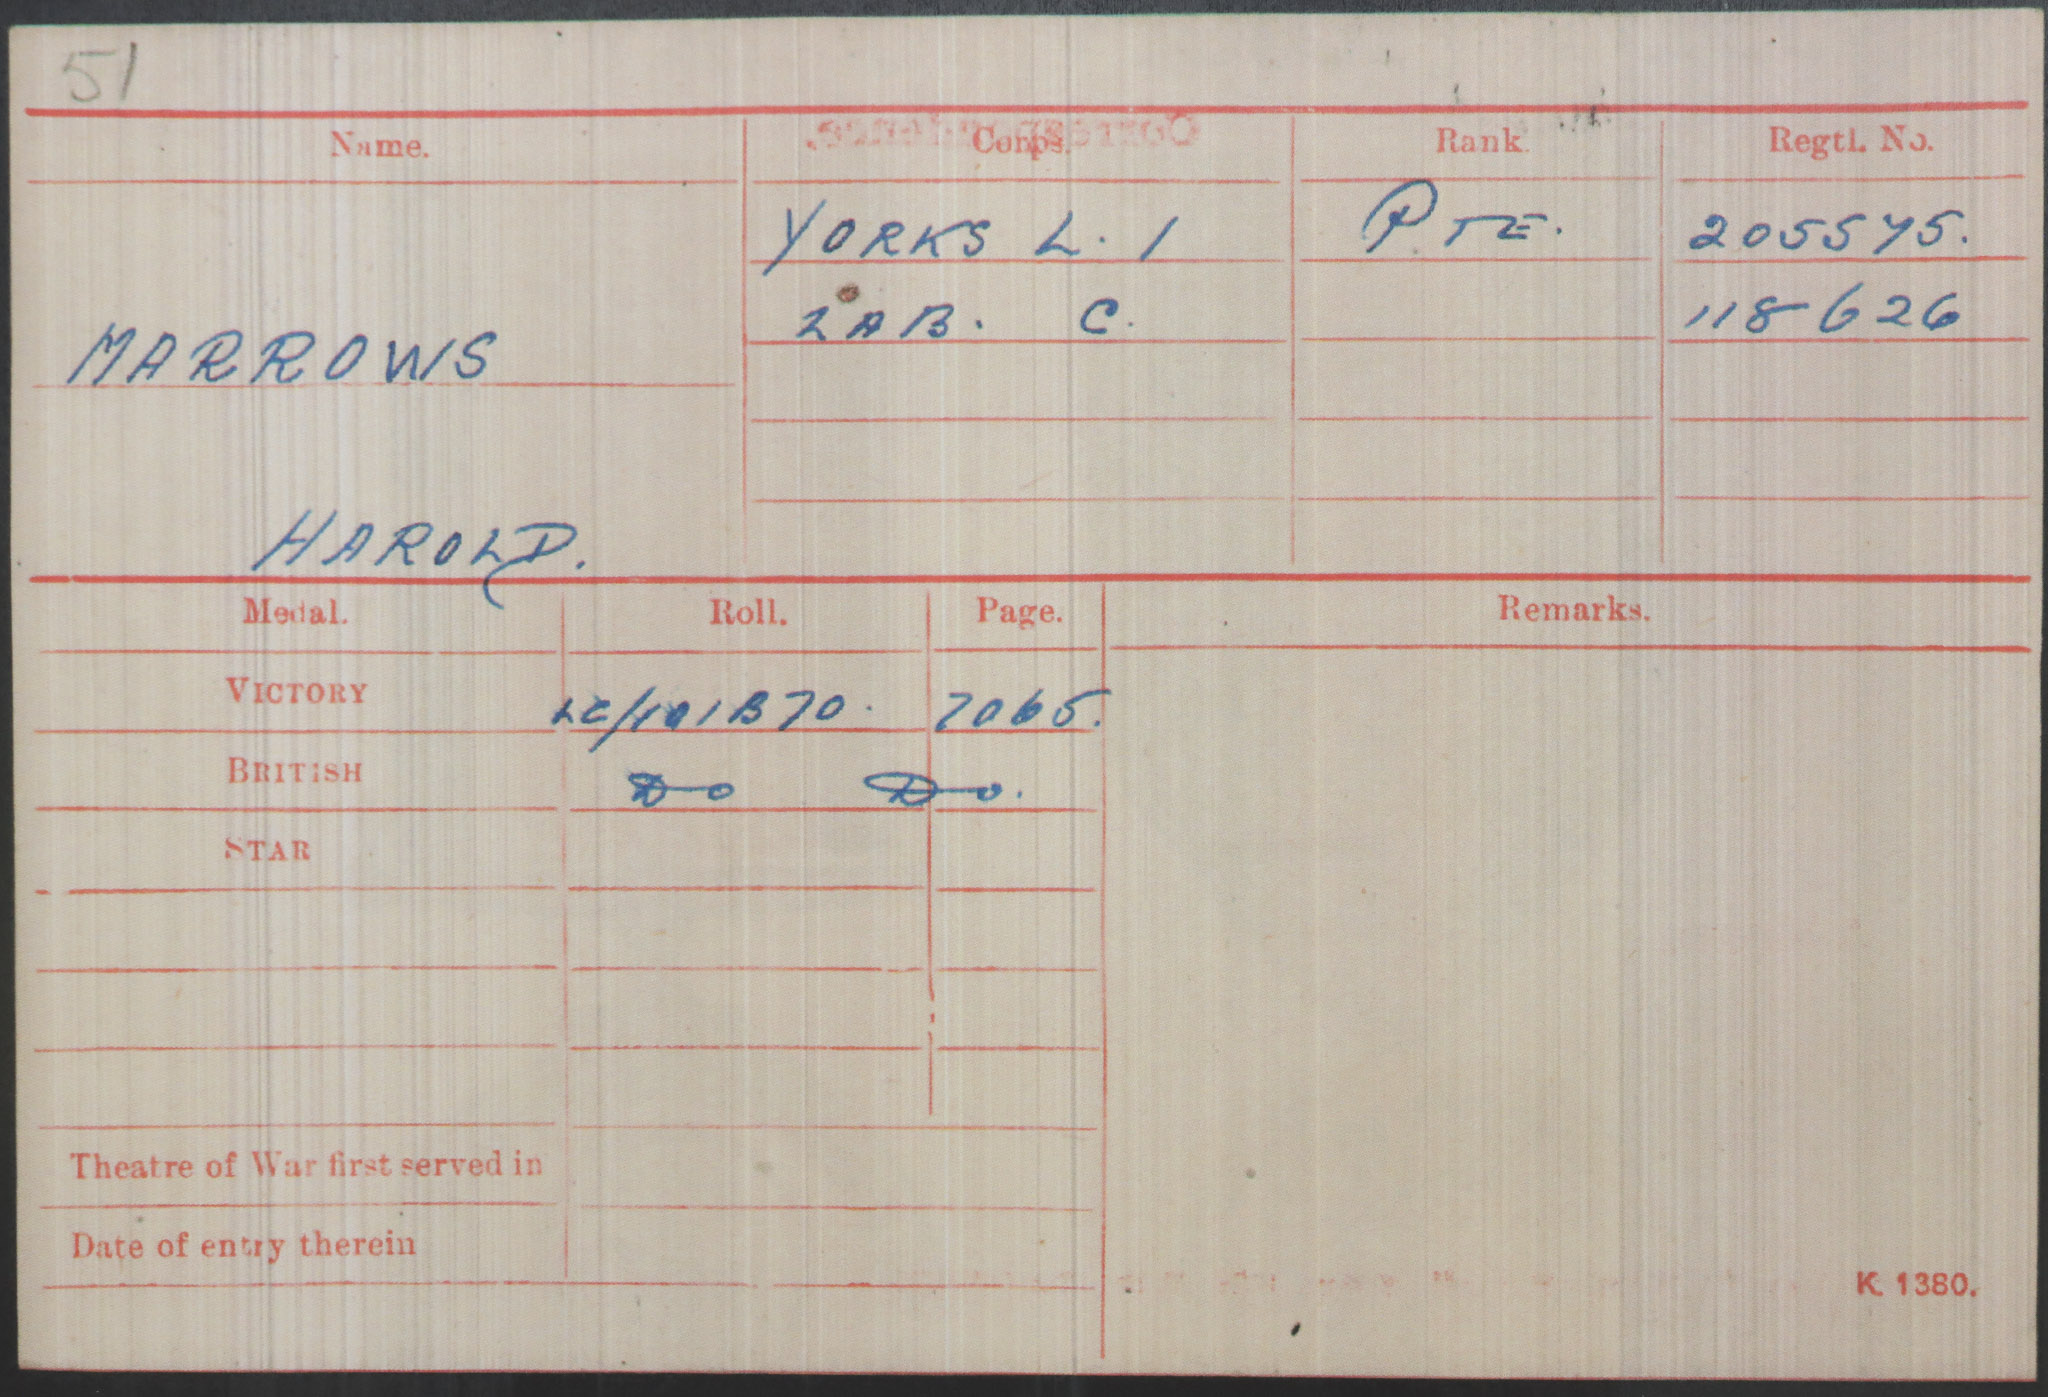 51
Name. Corps. Rank Regtl. No.
YORKS L. I PTE. 205575.
LAB. C. 118626
MARROWS
HAROLD.
Medal. Roll. Page. Remarks.
VICTORY LC/101B70. 7065.
BRITISH Do Do.
STAR
Theatre of War first served in
Date of entry therein
K. 1380.